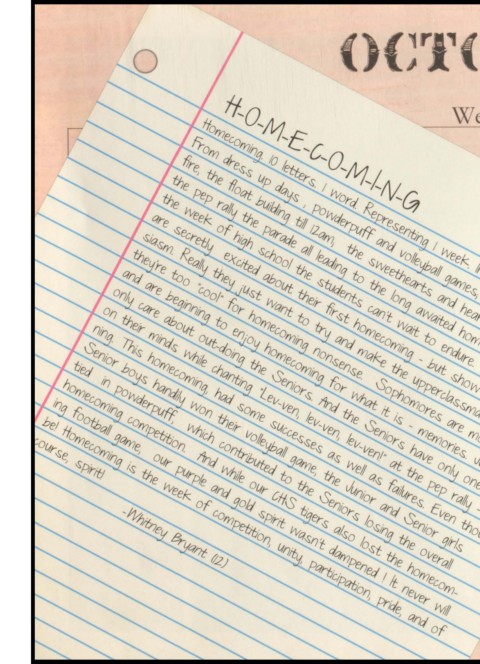 OCTO
We
H-O-M-E-C-O-M-I-N-G
Homecoming, 10 letters, 1 word. Representing 1 week.
From dress up days, powderpuff and volleyball games,
fire, the float building till 12am, the sweethearts and
the pep rally the parade all leading to the long awaited
the week of high school the students can't wait to endure.
are secretly excited about their first homecoming - but show
siasm. Really they just want to try and make the
they're too "cool" for homecoming nonsense. Sophomores are
and are beginning to enjoy homecoming for what it is - memories.
only care about out-doing the Seniors. And the Seniors have only one
on their minds while chanting "Lev-ven, lev-ven, lev-ven!" at the pep rally -
ning. This homecoming, had some successes as well as failures. Even
Senior boys handily won their volleyball game, the Junior and Senior girls
tied in powderpuff, which contributed to the Seniors losing the overall
homecoming competition. And while our CHS tigers also lost the homecom-
ing football game, our purple and gold spirit wasn't dampened! it never will
be! Homecoming is the week of competition, unity, participation, pride, and of
course, spirit!
-Whitney Bryant (12)